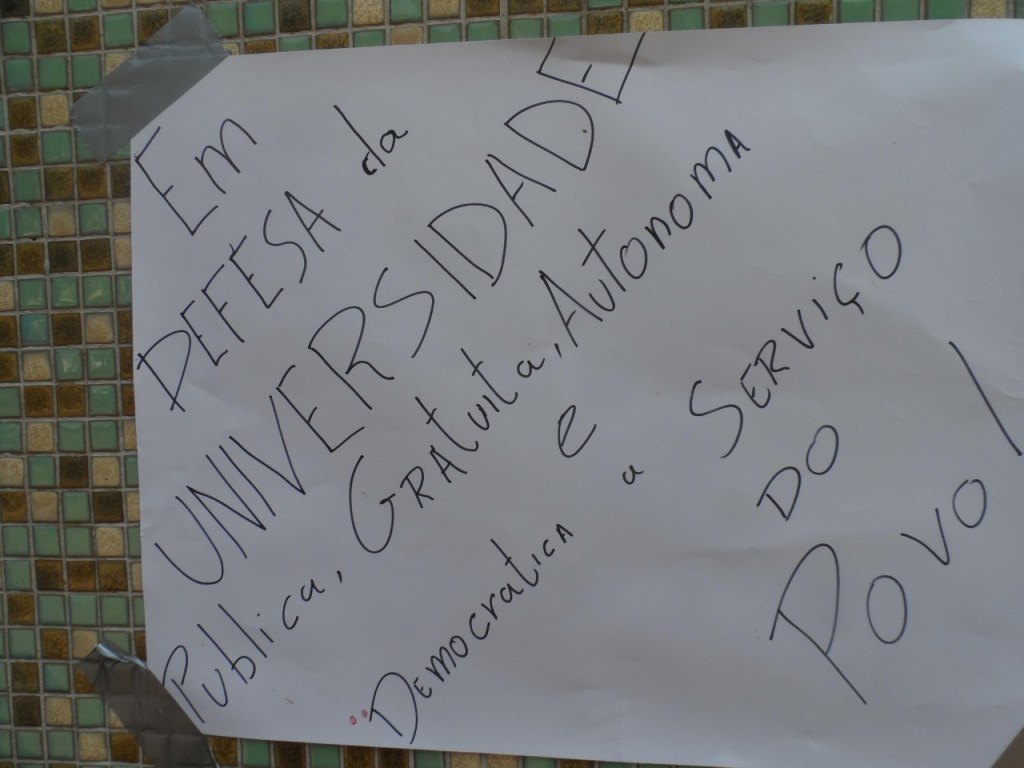 Em
DEFESA da
UNIVERSIDADE
Publica, GRAtuita, AUTONOMA
e
DEMOCRATICA a SERVIÇO
DO
POVO!